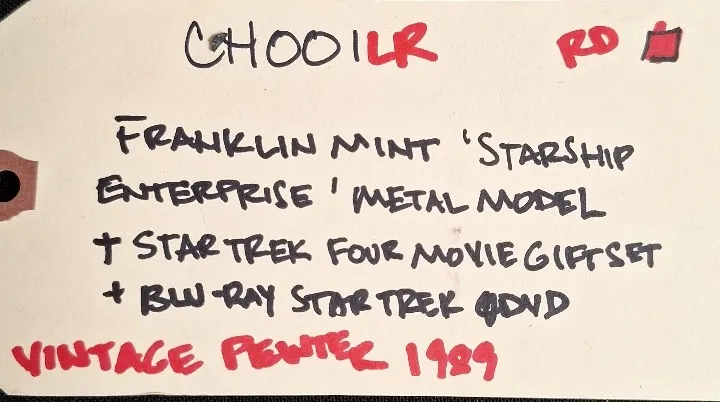 CHOO1LR RD
FRANKLIN MINT 'STARSHIP
ENTERPRISE' METAL MODEL
+ STAR TREK FOUR MOVIE GIFTSET
+ BLU-RAY STAR TREK DVD
VINTAGE PEWTER 1989